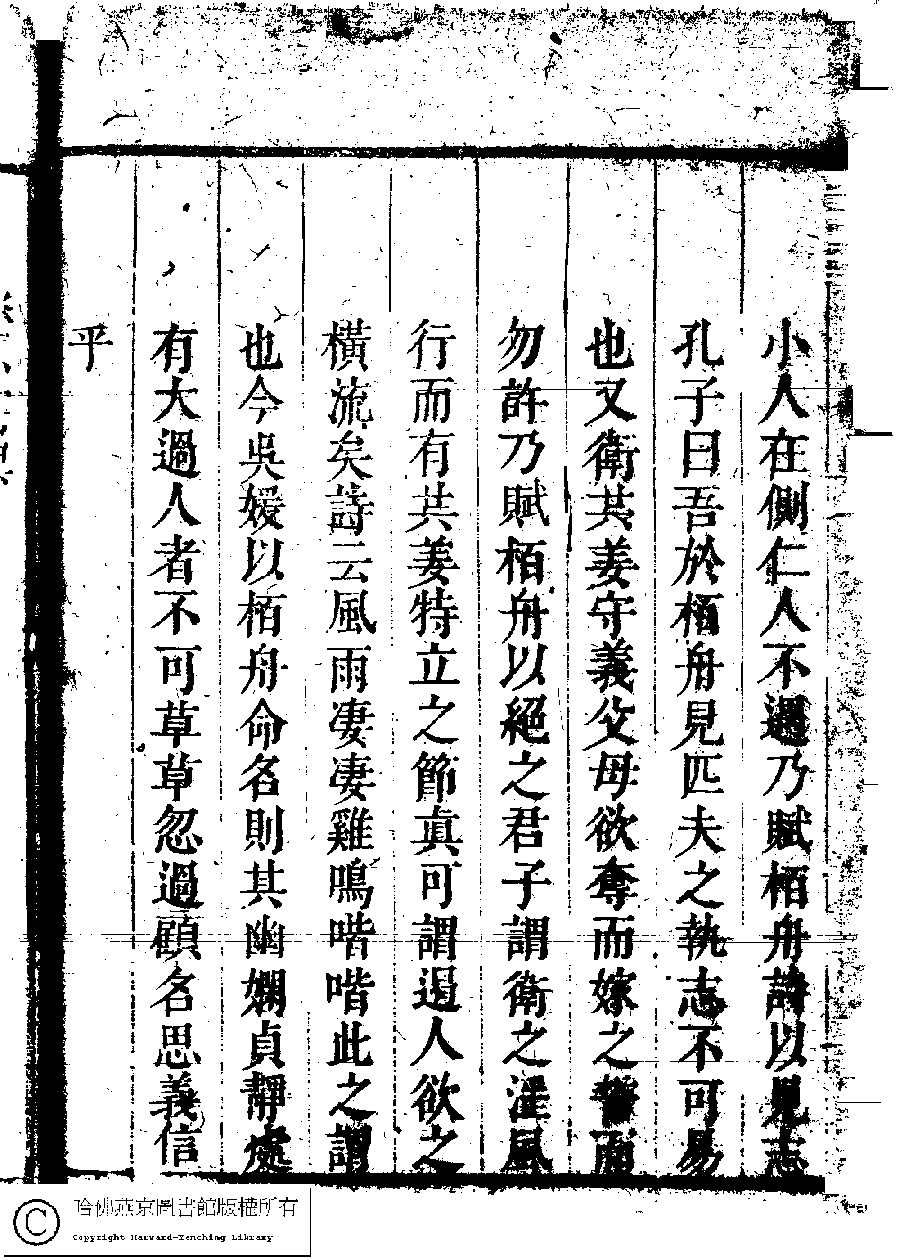 小人在側仁人不遇乃賦栢舟詩以見志
孔子曰吾於栢舟見匹夫之執志不可易
也又衛共姜守義父母欲奪而嫁之誓而
勿許乃賦栢舟以絕之君子謂衛之淫風
行而有共姜特立之節真可謂遏人欲之
橫流矣詩云風雨凄凄雞鳴喈喈此之謂
也今吳媛以栢舟命名則其幽嫻貞靜處
有大過人者不可草草忽過顧名思義信
乎
哈佛燕京圖書館版權所有
Copyright Harvard-Yenching Library